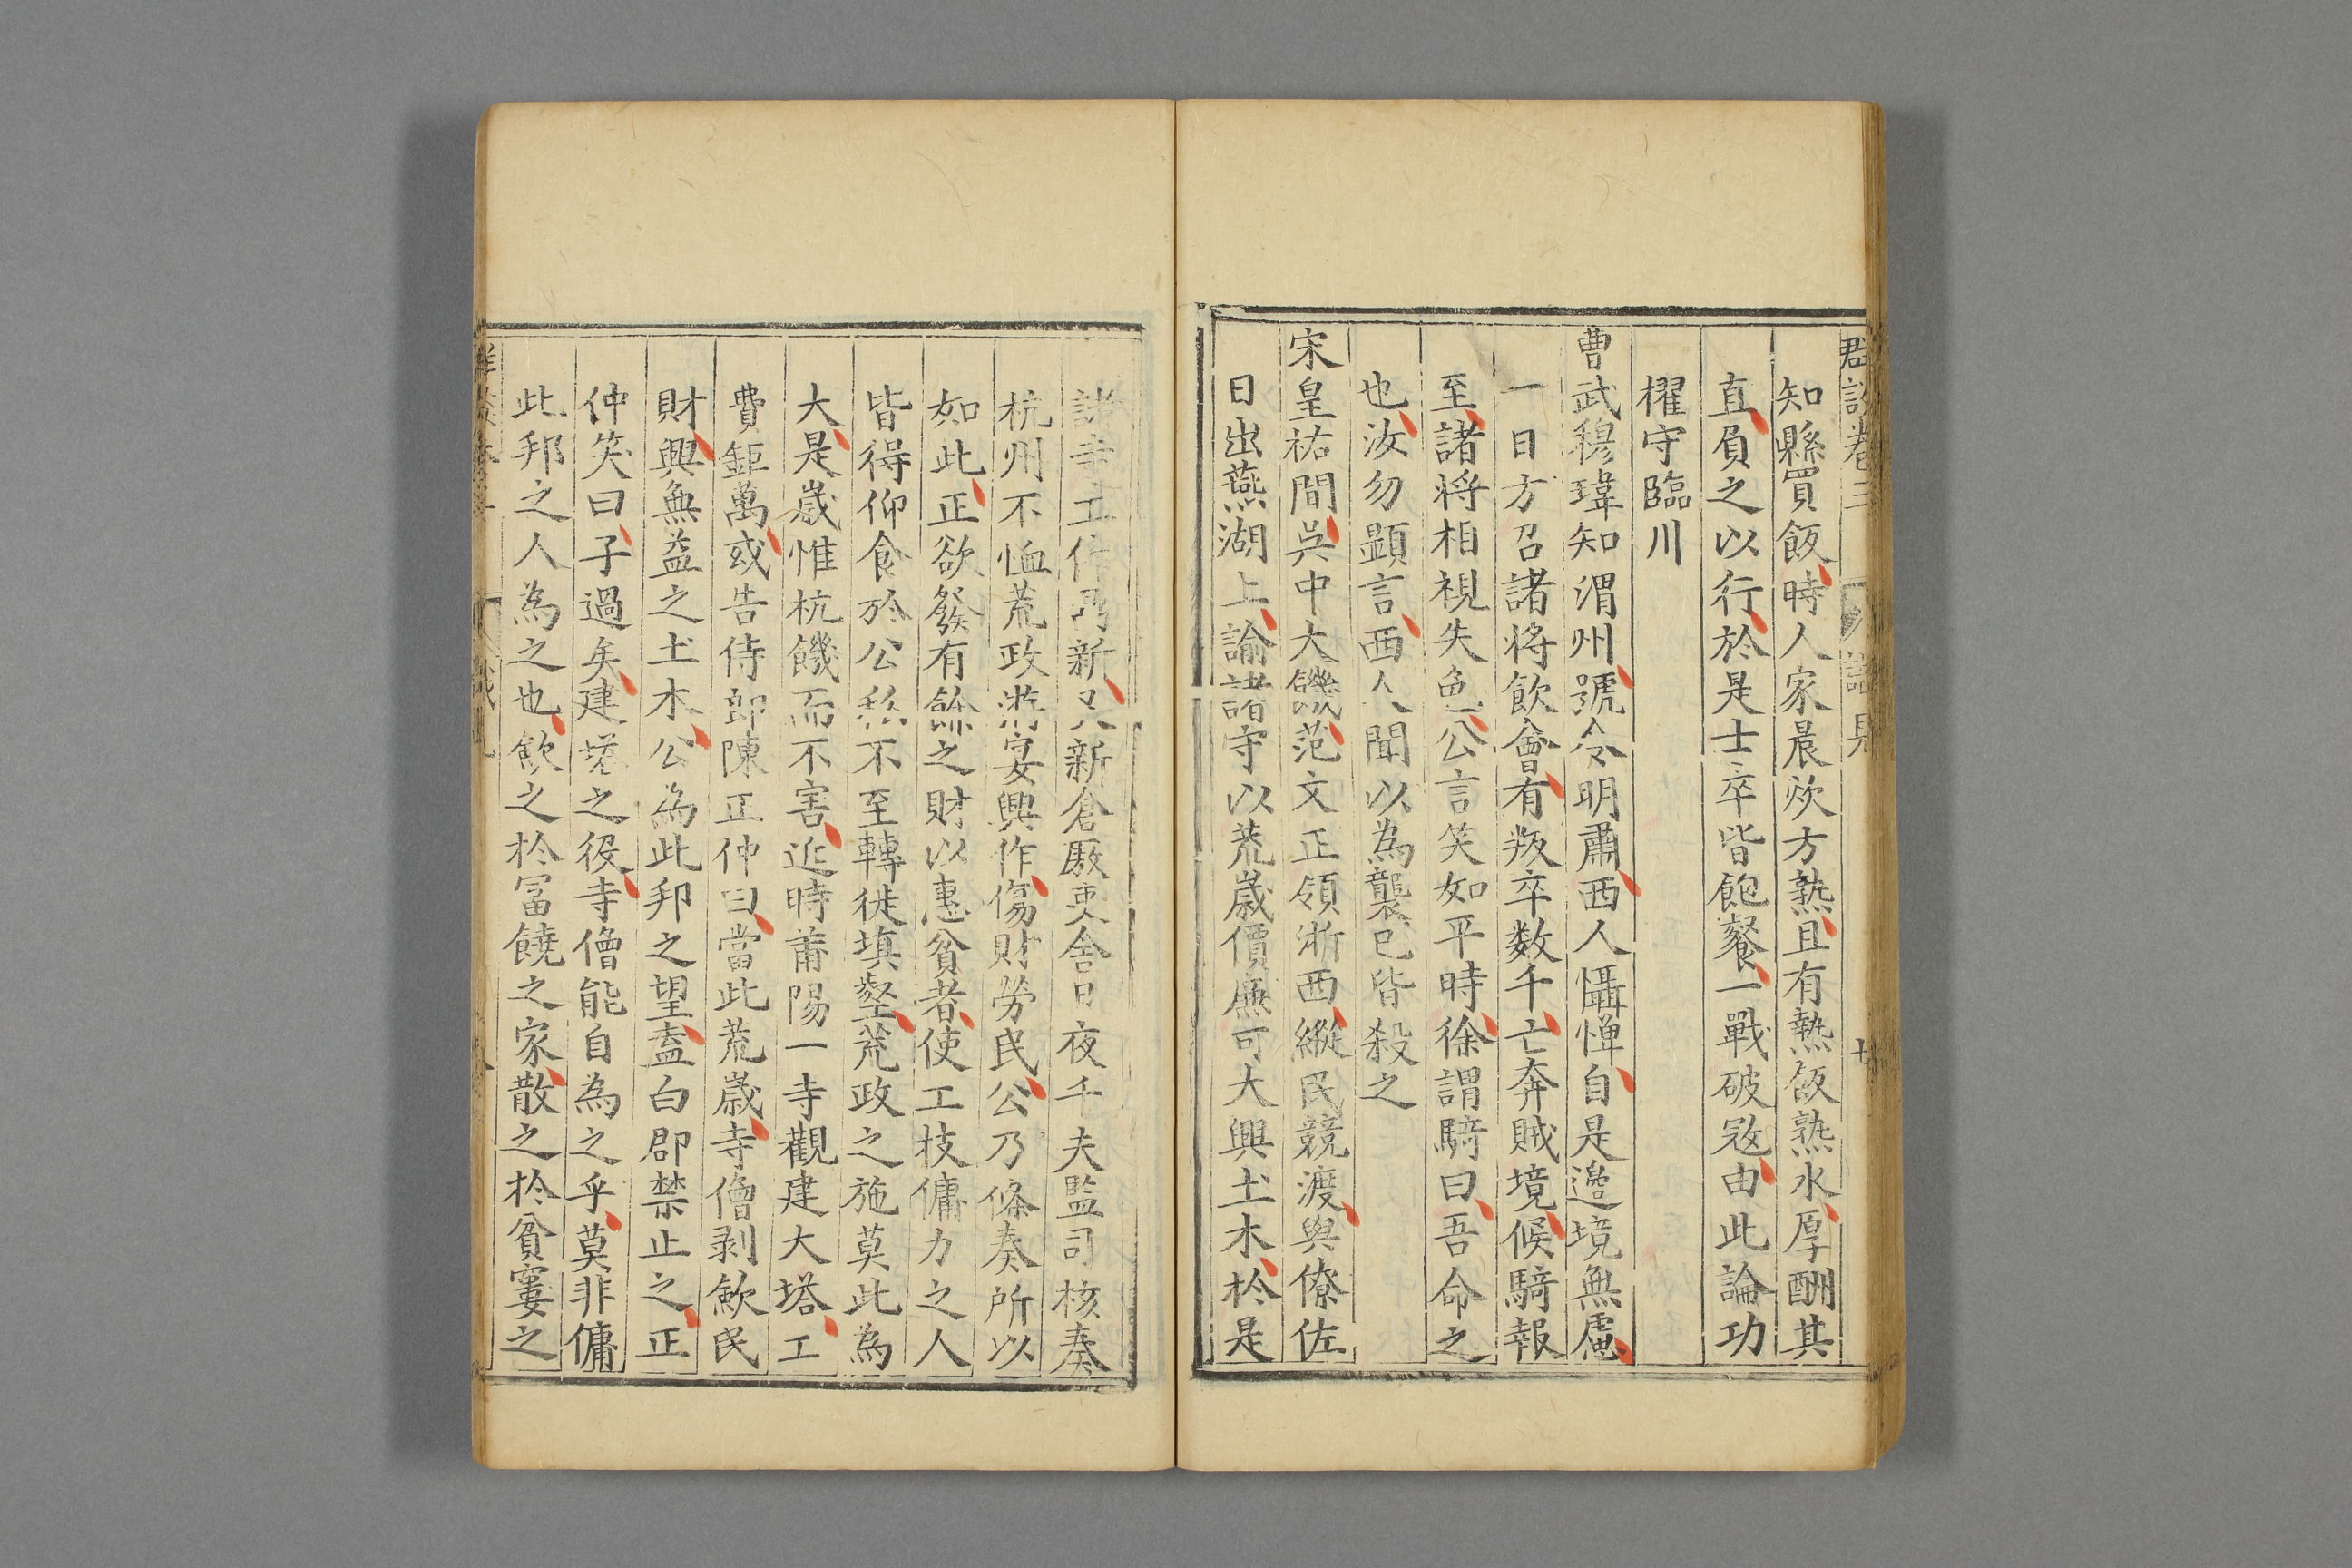 知縣買飯時人家晨炊方熟且有熱飯熟水厚酬其
直負之以行於是士卒皆飽餐一戰破㓂由此論功
櫂守臨川
曹武穆瑋知渭州號令明肅西人懾憚自是邉境無慮
一日方召諸將飲會有叛卒数千亡奔賊境候騎報
至諸將相視失色公言笑如平時徐謂騎曰吾命之
也汝勿顯言西人聞以為襲已皆殺之
宋皇祐間吳中大饑范文正領浙西縱民競渡與僚佐
日出燕湖上諭諸守以荒歲價廉可大興土木於是
諸寺工作再新又新倉廒吏舍日夜千夫監司核奏
杭州不恤荒政游宴興作傷財勞民公乃條奏所以
如此正欲發有餘之財以惠貧者使工技傭力之人
皆得仰食於公私不至轉徙填壑荒政之施莫此為
大是歲惟杭饑而不害近時莆陽一寺觀建大塔工
費鉅萬或告侍郎陳正仲曰當此荒歲寺僧剥歛民
財興無益之土木公為此邦之望盍白郡禁止之正
仲笑曰子過矣建塔之役寺僧能自為之乎莫非傭
此邦之人為之也歛之於冨饒之家散之於貧窶之